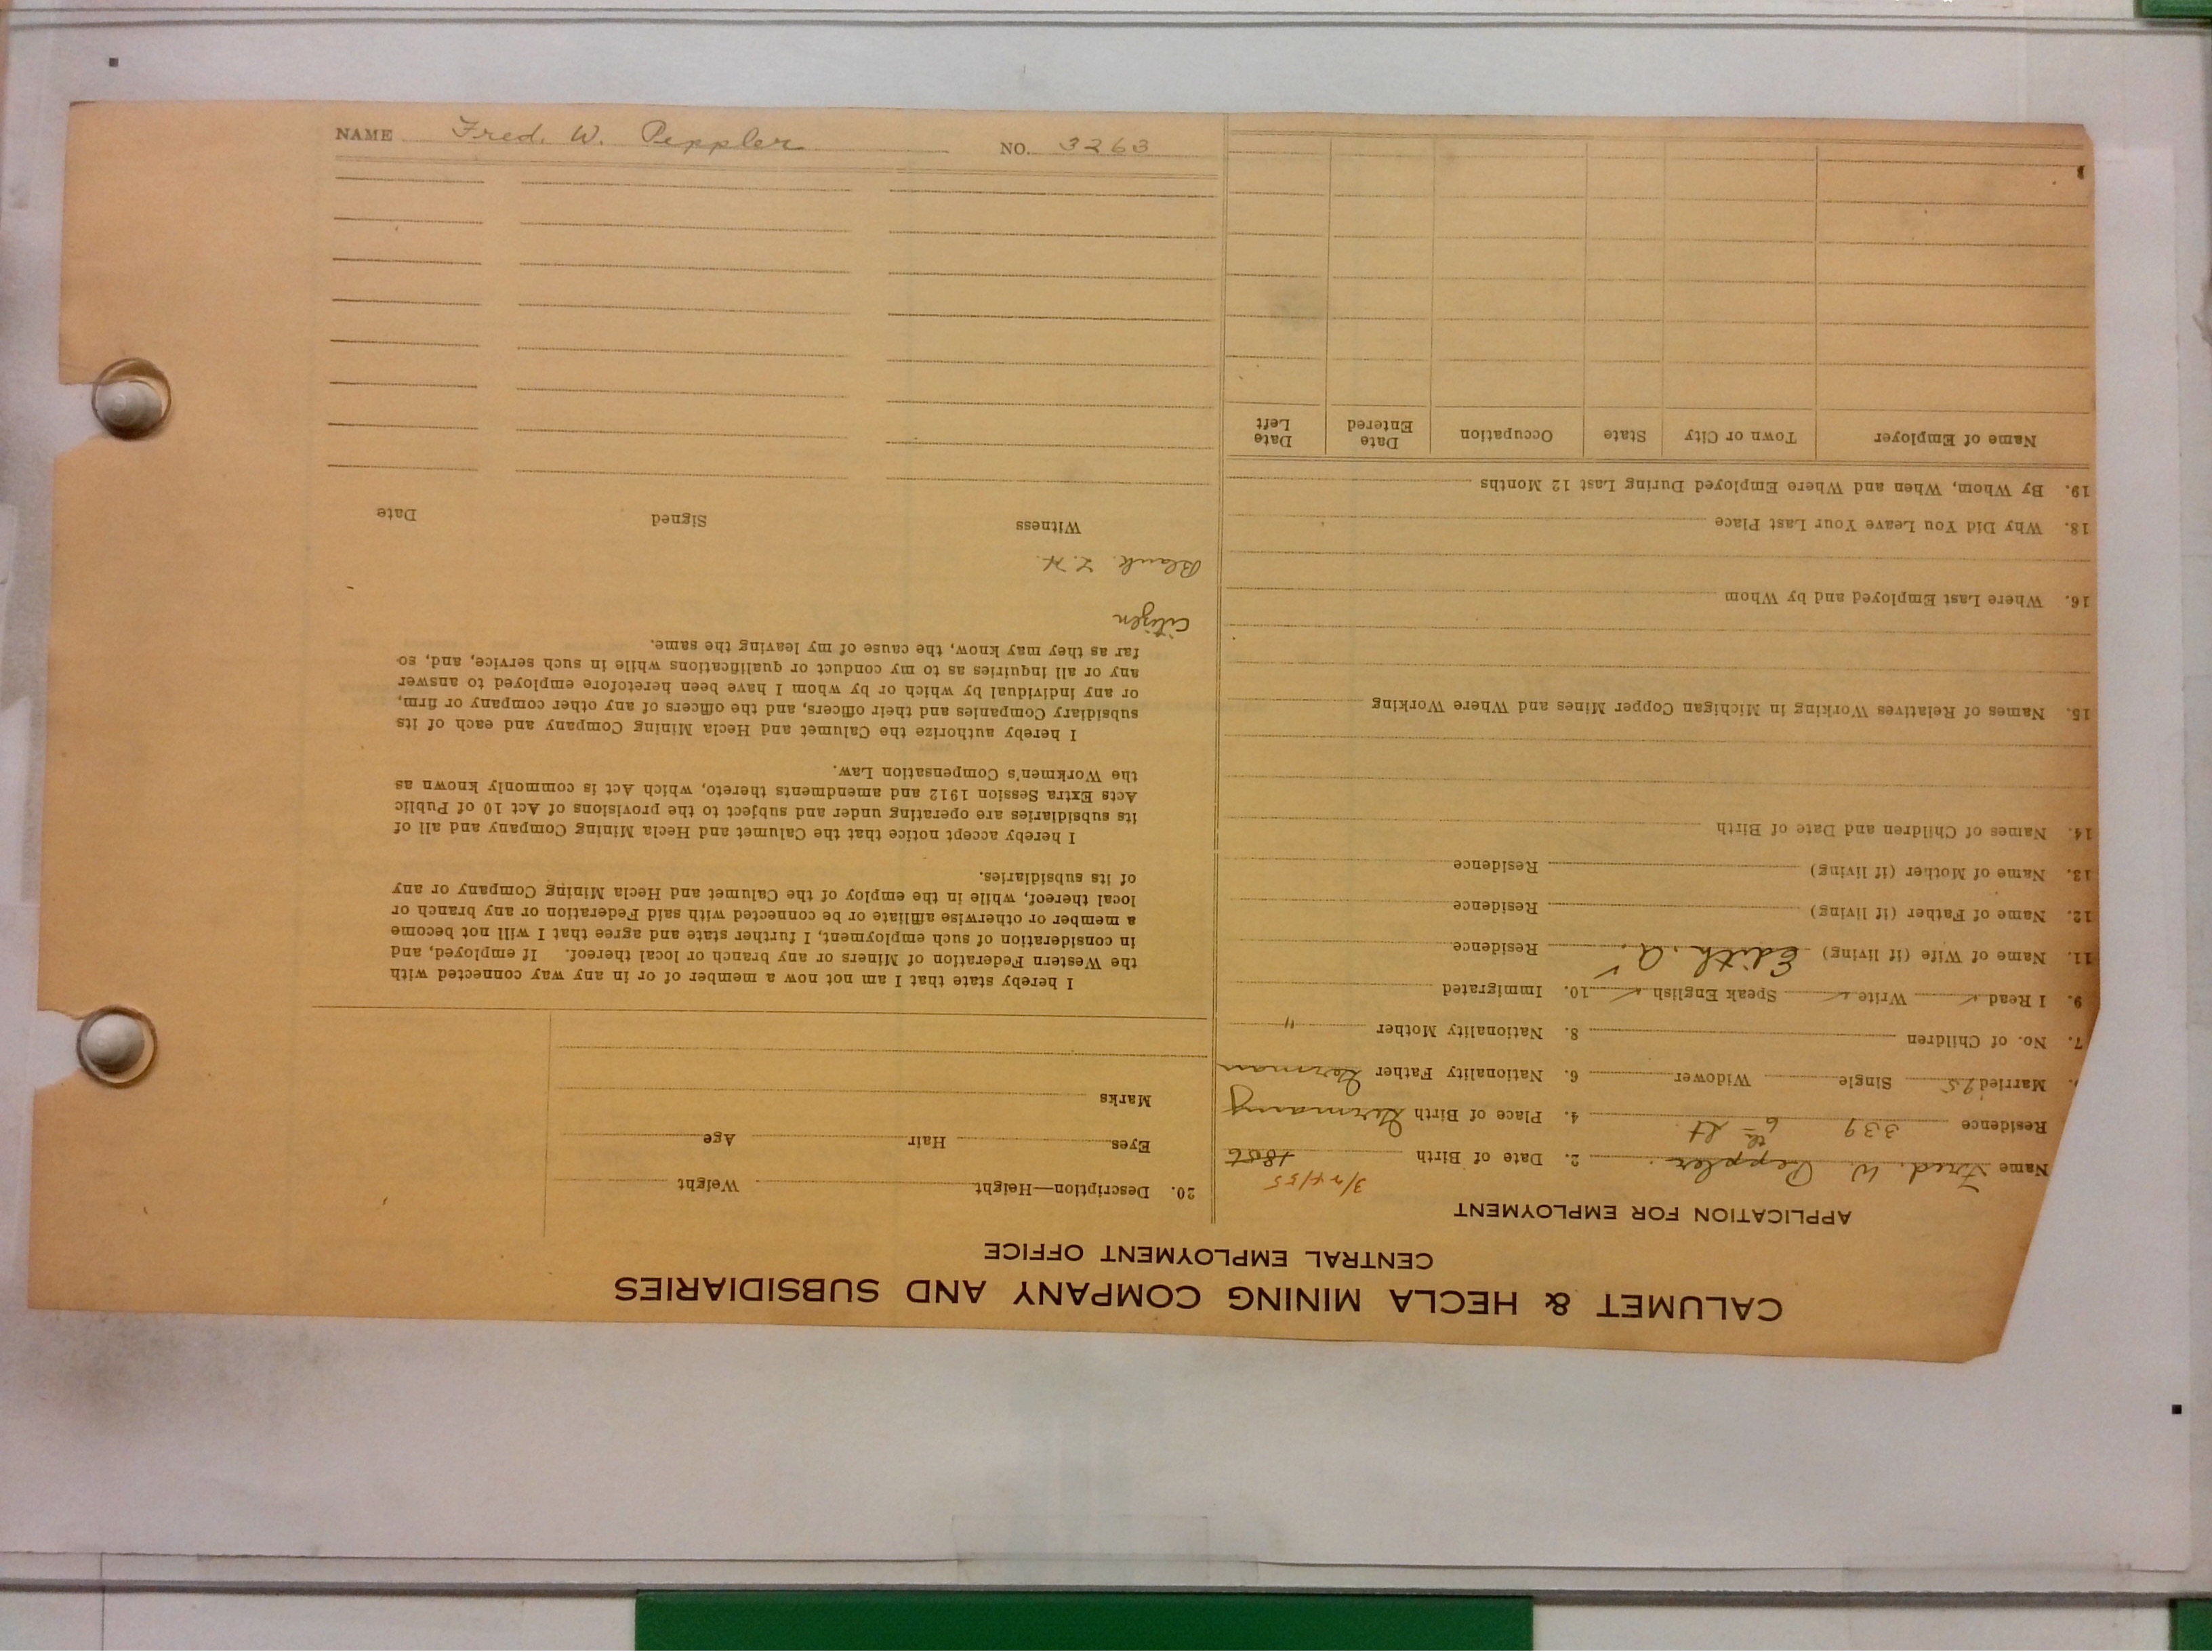 NAME Fred. W. Peppler NO. 3263
CALUMET & HECLA MINING COMPANY AND SUBSIDIARIES
CENTRAL EMPLOYMENT OFFICE
APPLICATION FOR EMPLOYMENT
Name Fred. W. Peppler. 2. Date of Birth 1856
Residence 339 6th St 4. Place of Birth Germany
Married Single Widower 6. Nationality Father German
7. No. of Children 8. Nationality Mother "
9. I Read ✓ Write ✓ Speak English ✓ 10. Immigrated
11. Name of Wife (if living) Edith. A. Residence
12. Name of Father (if living) Residence
13. Name of Mother (if living) Residence
14. Names of Children and Date of Birth
15. Names of Relatives Working in Michigan Copper Mines and Where Working
16. Where Last Employed and by Whom
18. Why Did You Leave Your Last Place
19. By Whom, When and Where Employed During Last 12 Months
Name of Employer Town or City State Occupation Date Entered Date Left
20. Description—Height Weight
Eyes Hair Age
Marks
I hereby state that I am not now a member of or in any way connected with
the Western Federation of Miners or any branch or local thereof. If employed, and
in consideration of such employment, I further state and agree that I will not become
a member or otherwise affiliate or be connected with said Federation or any branch or
local thereof, while in the employ of the Calumet and Hecla Mining Company or any
of its subsidiaries.
I hereby accept notice that the Calumet and Hecla Mining Company and all of
its subsidiaries are operating under and subject to the provisions of Act 10 of Public
Acts Extra Session 1912 and amendments thereto, which Act is commonly known as
the Workmen's Compensation Law.
I hereby authorize the Calumet and Hecla Mining Company and each of its
subsidiary Companies and their officers, and the officers of any other company or firm,
or any individual by which or by whom I have been heretofore employed to answer
any or all inquiries as to my conduct or qualifications while in such service, and, so
far as they may know, the cause of my leaving the same.
Citizen
Blank.
Witness Signed Date